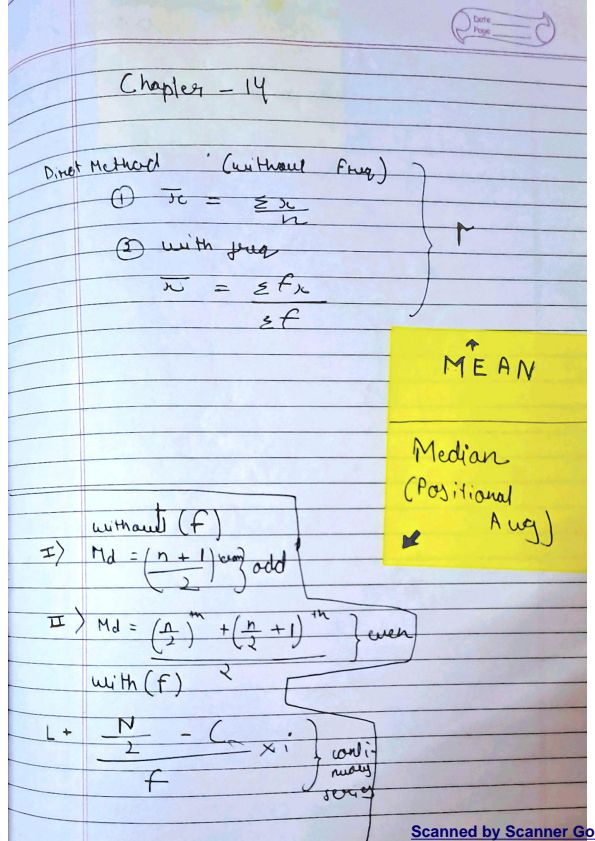 Date
Page
Chapter - 14
Direct Method (without freq)
① x̅ = Σx / n
② with freq
x̅ = Σfx / Σf
MEAN
Median
(Positional
Avg)
without (f)
I> Md = ((n + 1) / 2) term } odd
II> Md = ((n/2)th + (n/2 + 1)th) / 2 } even
with (f)
L + (N/2 - C) / f × i } conti-
nuous
series
Scanned by Scanner Go